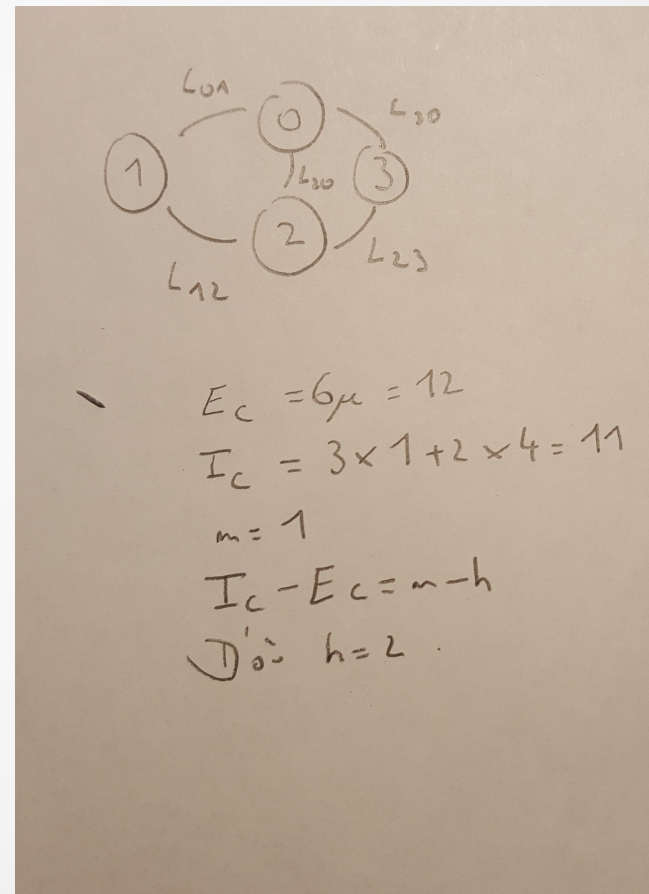 L01
0
L30
1
L20
3
2
L23
L12
Ec = 6μ = 12
Ic = 3×1+2×4 = 11
m = 1
Ic - Ec = m - h
D'où h = 2.